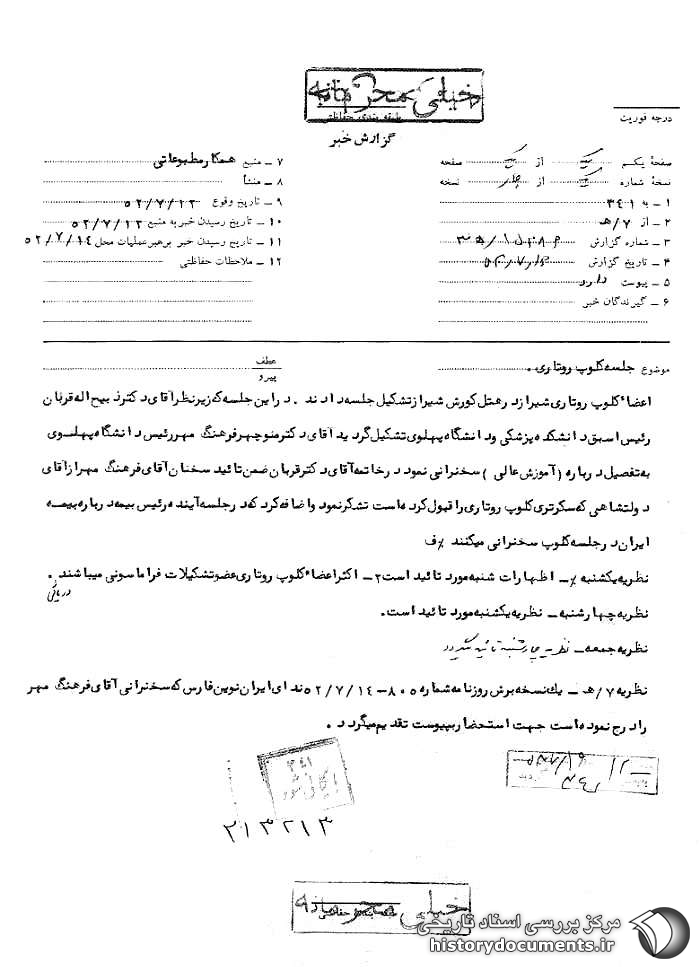 خیلی محرمانه
طبقه بندی حفاظتی
گزارش خبر
درجه فوریت
صفحهٔ یکم یک از یک صفحه
نسخهٔ شماره یک از چهار نسخه
۱ ـ به ۳۴۱
۲ ـ از ۷/هـ
۳ ـ شماره گزارش
۴ ـ تاریخ گزارش
۵ ـ پیوست دارد
۶ ـ گیرندگان خبر
۷ ـ منبع همکار مطبوعاتی
۸ ـ منشأ
۹ ـ تاریخ وقوع ۵۲/۷/۱۲
۱۰ ـ تاریخ رسیدن خبر به منبع ۵۲/۷/۱۲
۱۱ ـ تاریخ رسیدن خبر برهبر عملیات محل ۵۲/۷/۱۴
۱۲ ـ ملاحظات حفاظتی
موضوع جلسه کلوپ روتاری .
عطف
پیرو
اعضاء کلوپ روتاری شیراز در هتل کورش شیراز تشکیل جلسه دادند . در این جلسه که زیر نظر آقای دکتر ذبیح اله قربان
رئیس اسبق دانشکده پزشکی و دانشگاه پهلوی تشکیل گردید آقای دکتر منوچهر فرهنگ مهر رئیس دانشگاه پهلوی
به تفصیل درباره (آموزش عالی ) سخنرانی نمود در خاتمه آقای دکتر قربان ضمن تائید سخنان آقای فرهنگ مهر از آقای
دولتشاهی که سکرتری کلوپ روتاری را قبول کرده است تشکر نمود و اضافه کرد که در جلسه آینده رئیس بیمه درباره بیمه
ایران در جلسه کلوپ سخنرانی میکنند ٪ ف
نظریه یکشنبه ٪ـ اظهارات شنبه مورد تائید است ۲ـ اکثر اعضاء کلوپ روتاری عضو تشکیلات فراماسونی میباشند .
نظریه چهارشنبه ـ نظریه یکشنبه مورد تائید است .
نظریه جمعه ـ نظریه چهارشنبه تائید میگردد
نظریه ۷/هـ ـ یک نسخه برش روزنامه شماره ۸۰۵ ـ ۵۲/۷/۱۴ ندای ایران نوین فارس که سخنرانی آقای فرهنگ مهر
را درج نموده است جهت استحضار بپیوست تقدیم میگردد .
۳۴۱
بایگانی شود
۲۱۳۲۱۳
خیلی محرمانه
مرکز بررسی اسناد تاریخی
historydocuments.ir